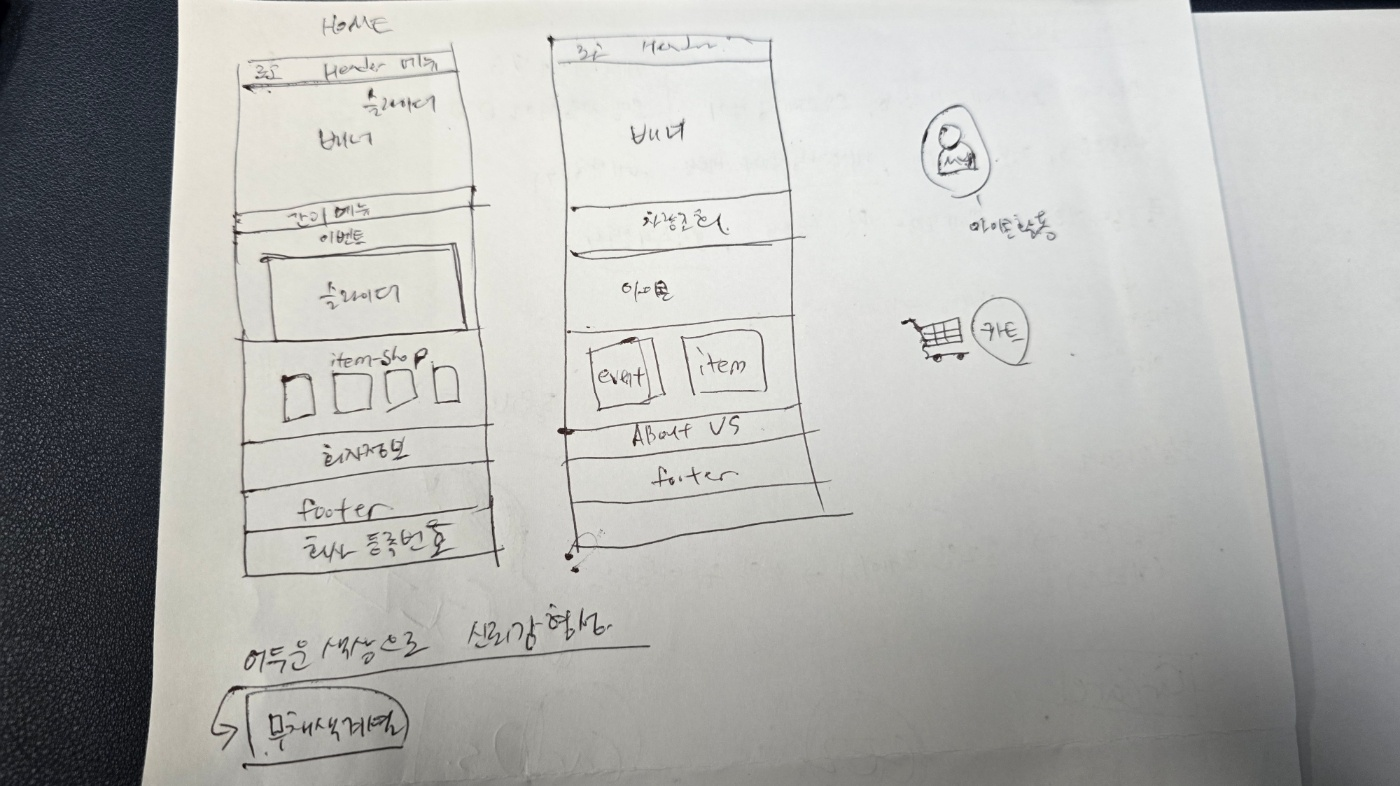 HOME
로고 Header 메뉴
슬라이더
배너
간이 메뉴
이벤트
슬라이더
item-shop
회사정보
footer
회사 등록번호
로고 Header
배너
차량조회
아이콘
event
item
ABout US
footer
MY
아이콘활용
카트
어두운 색상으로 신뢰감 형성.
무채색계열